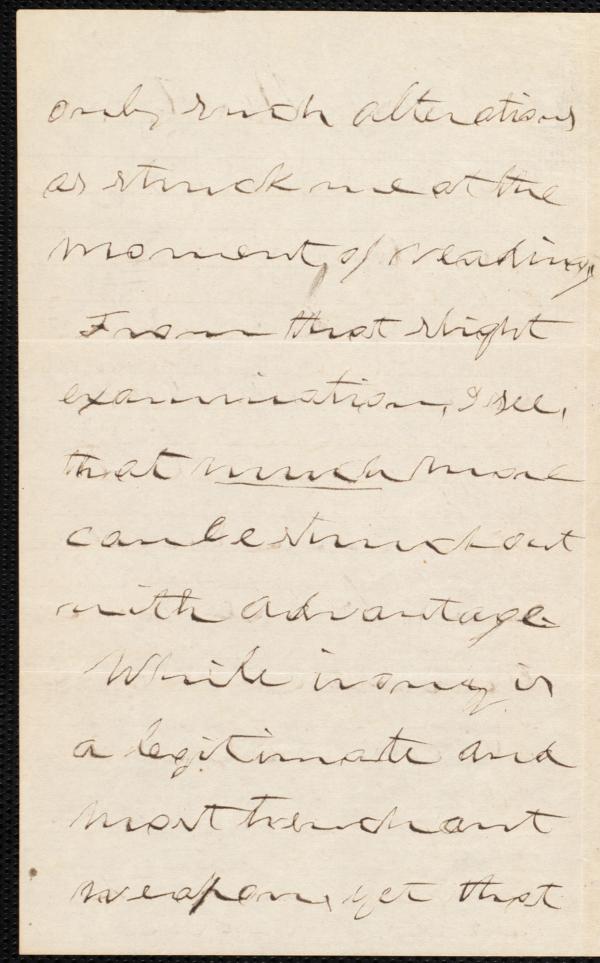 only such alterations
as struck me at the
moment of reading.
From that slight
examination, I see,
that much more
can be struck out
with advantage.
While irony is
a legitimate and
most trenchant
weapon, yet that